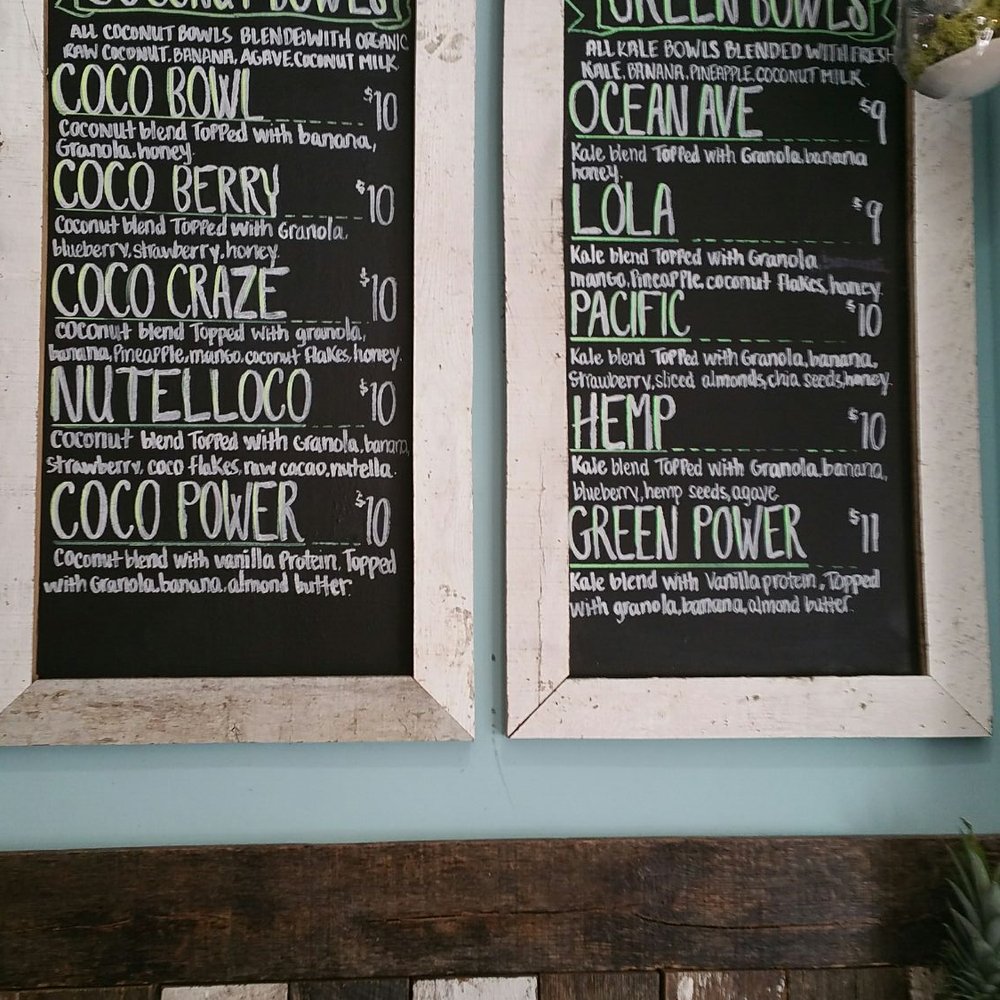 COCONUT BOWLS
ALL COCONUT BOWLS BLENDED WITH ORGANIC
RAW COCONUT, BANANA, AGAVE, COCONUT MILK
COCO BOWL $10
Coconut blend Topped with banana,
Granola, honey.
COCO BERRY $10
Coconut blend Topped with Granola,
blueberry, strawberry, honey.
COCO CRAZE $10
coconut blend Topped with granola,
banana, Pineapple, mango, coconut flakes, honey.
NUTELLOCO $10
coconut blend Topped with Granola, banana,
strawberry, coco flakes, raw cacao, nutella.
COCO POWER $10
Coconut blend with vanilla Protein, Topped
with Granola, banana, almond butter.
GREEN BOWLS
ALL KALE BOWLS BLENDED WITH FRESH
KALE, BANANA, PINEAPPLE, COCONUT MILK
OCEAN AVE $9
Kale blend Topped with Granola, banana
honey.
LOLA $9
Kale blend Topped with Granola
mango, Pineapple, coconut flakes, honey
PACIFIC $10
Kale blend Topped with Granola, banana,
Strawberry, sliced almonds, chia seeds, honey.
HEMP $10
Kale blend Topped with Granola, banana,
blueberry, hemp seeds, agave
GREEN POWER $11
Kale blend with Vanilla protein, Topped
with granola, banana, almond butter.